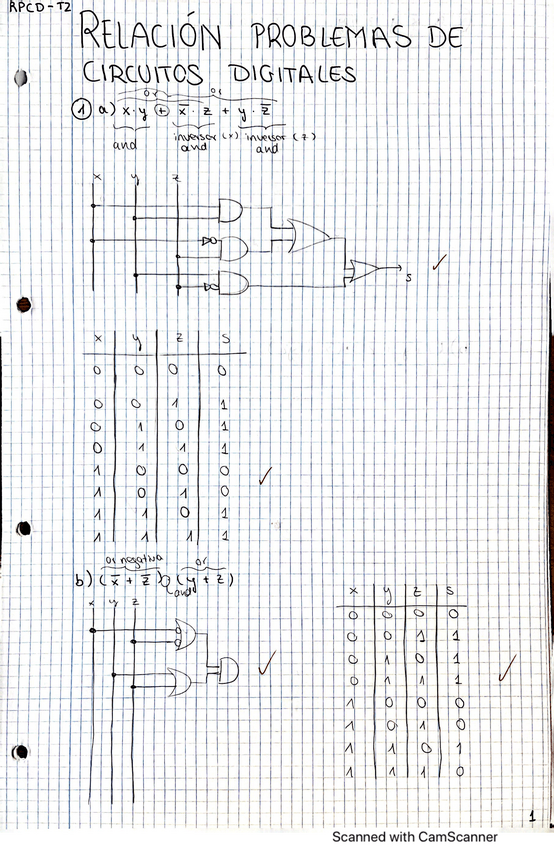 RPCD-T2
RELACIÓN PROBLEMAS DE
CIRCUITOS DIGITALES
or or
① a) x·y ⊕ x̄·z + y·z̄
and inversor (x) and inversor (z) and
x y z
S
x y z S
0 0 0 0
0 0 1 1
0 1 0 1
0 1 1 1
1 0 0 0
1 0 1 0
1 1 0 1
1 1 1 1
or negativa or
b) (x̄ + z̄) (y + z)
and
x y z
x y z S
0 0 0 0
0 0 1 1
0 1 0 1
0 1 1 1
1 0 0 0
1 0 1 0
1 1 0 1
1 1 1 0
1
Scanned with CamScanner